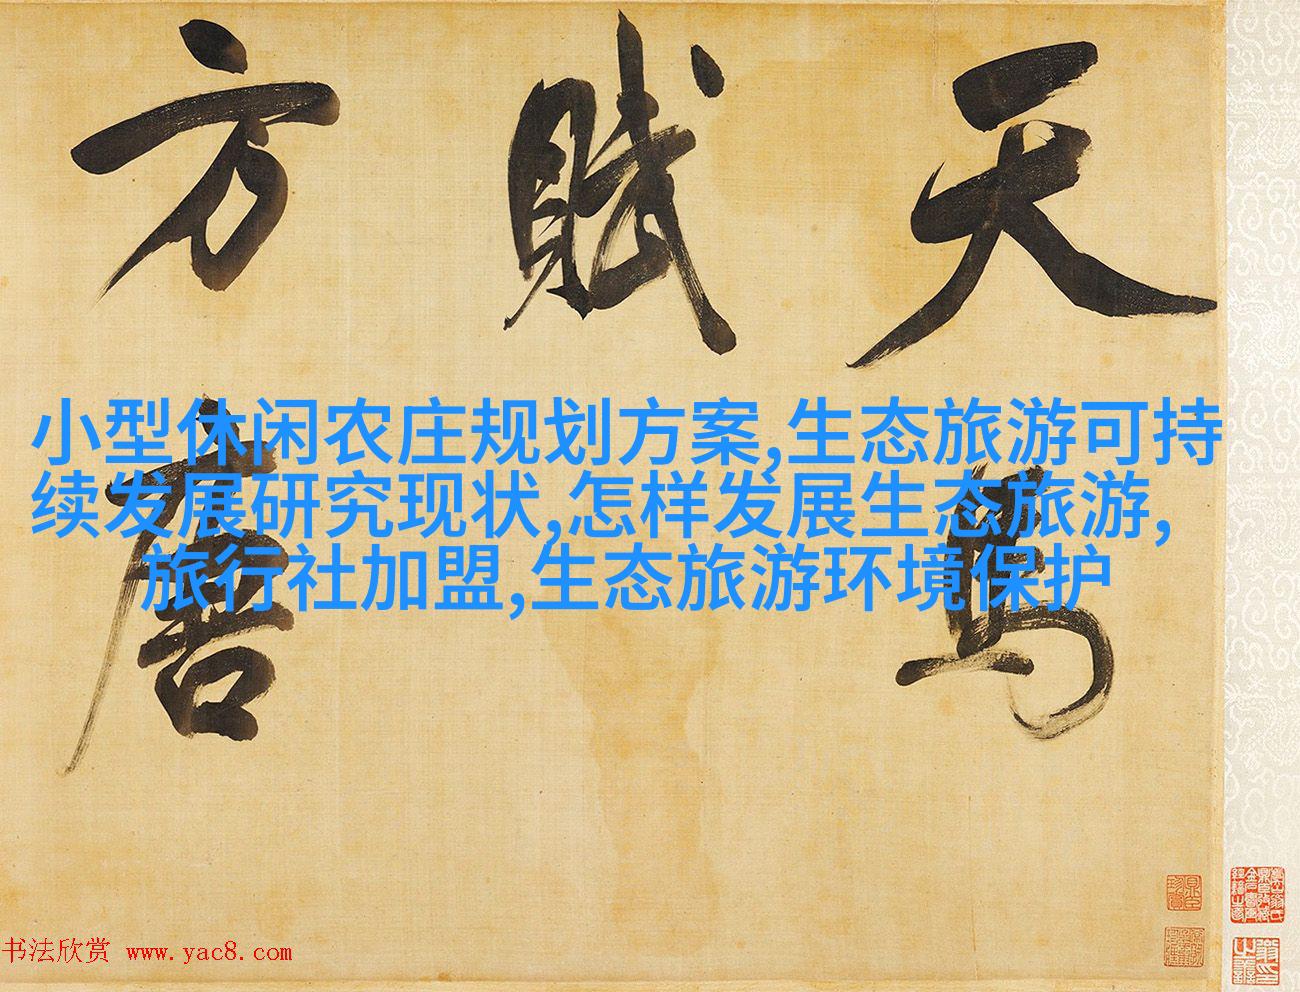 天马
赋
方唐
小型休闲农庄规划方案,生态旅游可持
续发展研究现状,怎样发展生态旅游,
旅行社加盟,生态旅游环境保护
书法欣赏 www.yac8.com